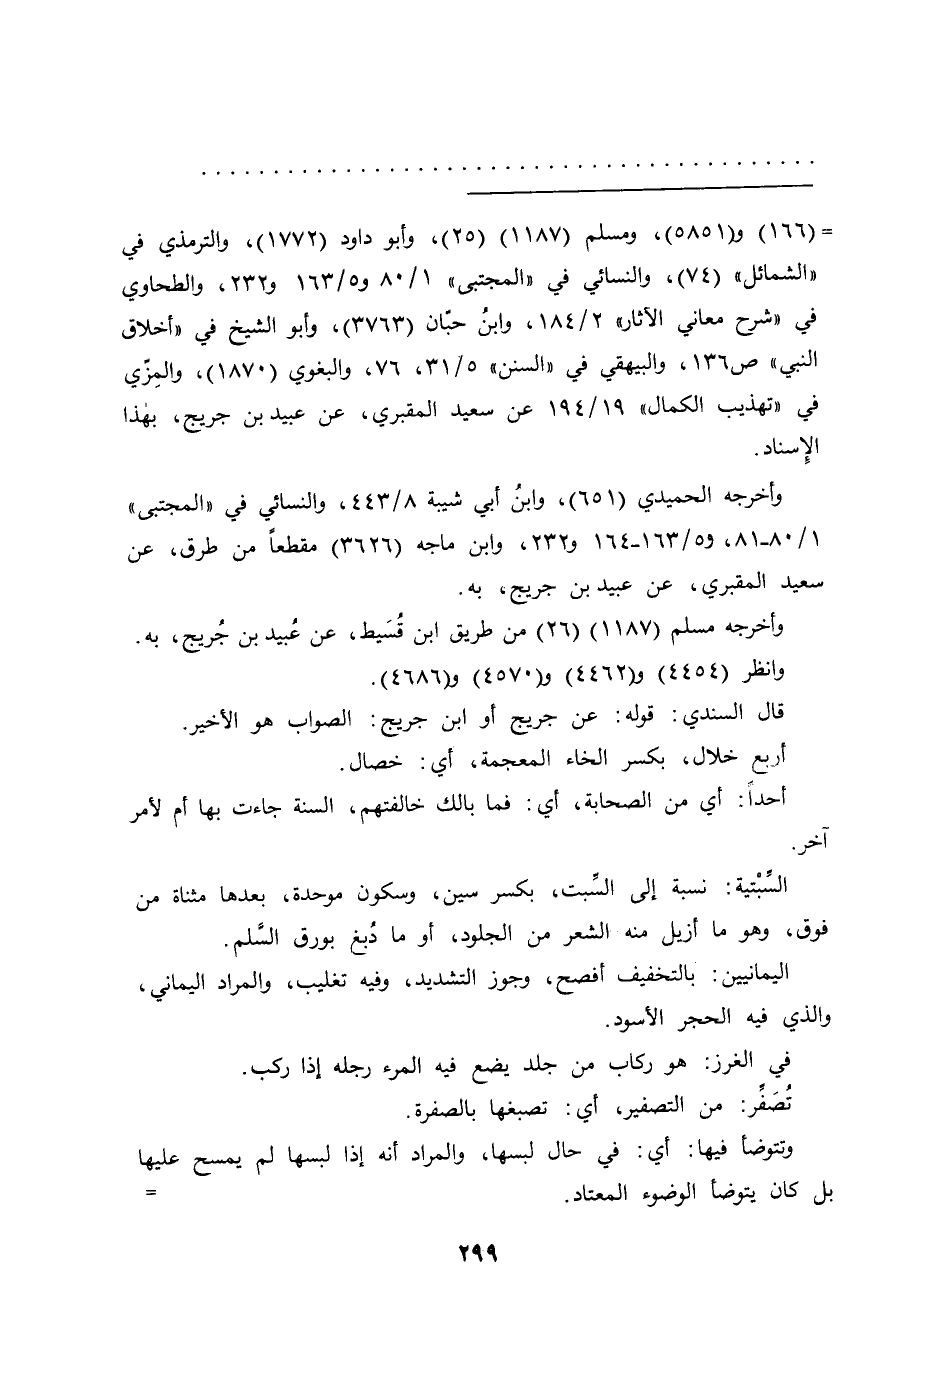 = (١٦٦) و(٥٨٥١)، ومسلم (١١٨٧) (٢٥)، وأبو داود (١٧٧٢)، والترمذي في
«الشمائل» (٧٤)، والنسائي في «المجتبى» ٨٠/١ و١٦٣/٥ و٢٣٢، والطحاوي
في «شرح معاني الآثار» ١٨٤/٢، وابنُ حبّان (٣٧٦٣)، وأبو الشيخ في «أخلاق
النبي» ص١٣٦، والبيهقي في «السنن» ٣١/٥، ٧٦، والبغوي (١٨٧٠)، والمِزّي
في «تهذيب الكمال» ١٩٤/١٩ عن سعيد المقبري، عن عبيد بن جريج، بهٰذا
الإِسناد.
وأخرجه الحميدي (٦٥١)، وابنُ أبي شيبة ٤٤٣/٨، والنسائي في «المجتبى»
٨٠/١-٨١، و١٦٣/٥-١٦٤ و٢٣٢، وابن ماجه (٣٦٢٦) مقطعاً من طرق، عن
سعيد المقبري، عن عبيد بن جريج، به.
وأخرجه مسلم (١١٨٧) (٢٦) من طريق ابن قُسَيط، عن عُبيد بن جُريج، به.
وانظر (٤٤٥٤) و(٤٤٦٢) و(٤٥٧٠) و(٤٦٨٦).
قال السندي: قوله: عن جريج أو ابن جريج: الصواب هو الأخير.
أربع خلال، بكسر الخاء المعجمة، أي: خصال.
أحداً: أي من الصحابة، أي: فما بالك خالفتهم، السنة جاءت بها أم لأمر
آخر.
السِّبْتية: نسبة إلى السِّبت، بكسر سين، وسكون موحدة، بعدها مثناة من
فوق، وهو ما أزيل منه الشعر من الجلود، أو ما دُبغ بورق السَّلم.
اليمانيين: بالتخفيف أفصح، وجوز التشديد، وفيه تغليب، والمراد اليماني،
والذي فيه الحجر الأسود.
في الغرز: هو ركاب من جلد يضع فيه المرء رجله إذا ركب.
تُصَفِّر: من التصفير، أي: تصبغها بالصفرة.
وتتوضأ فيها: أي: في حال لبسها، والمراد أنه إذا لبسها لم يمسح عليها
بل كان يتوضأ الوضوء المعتاد. =
٢٩٩